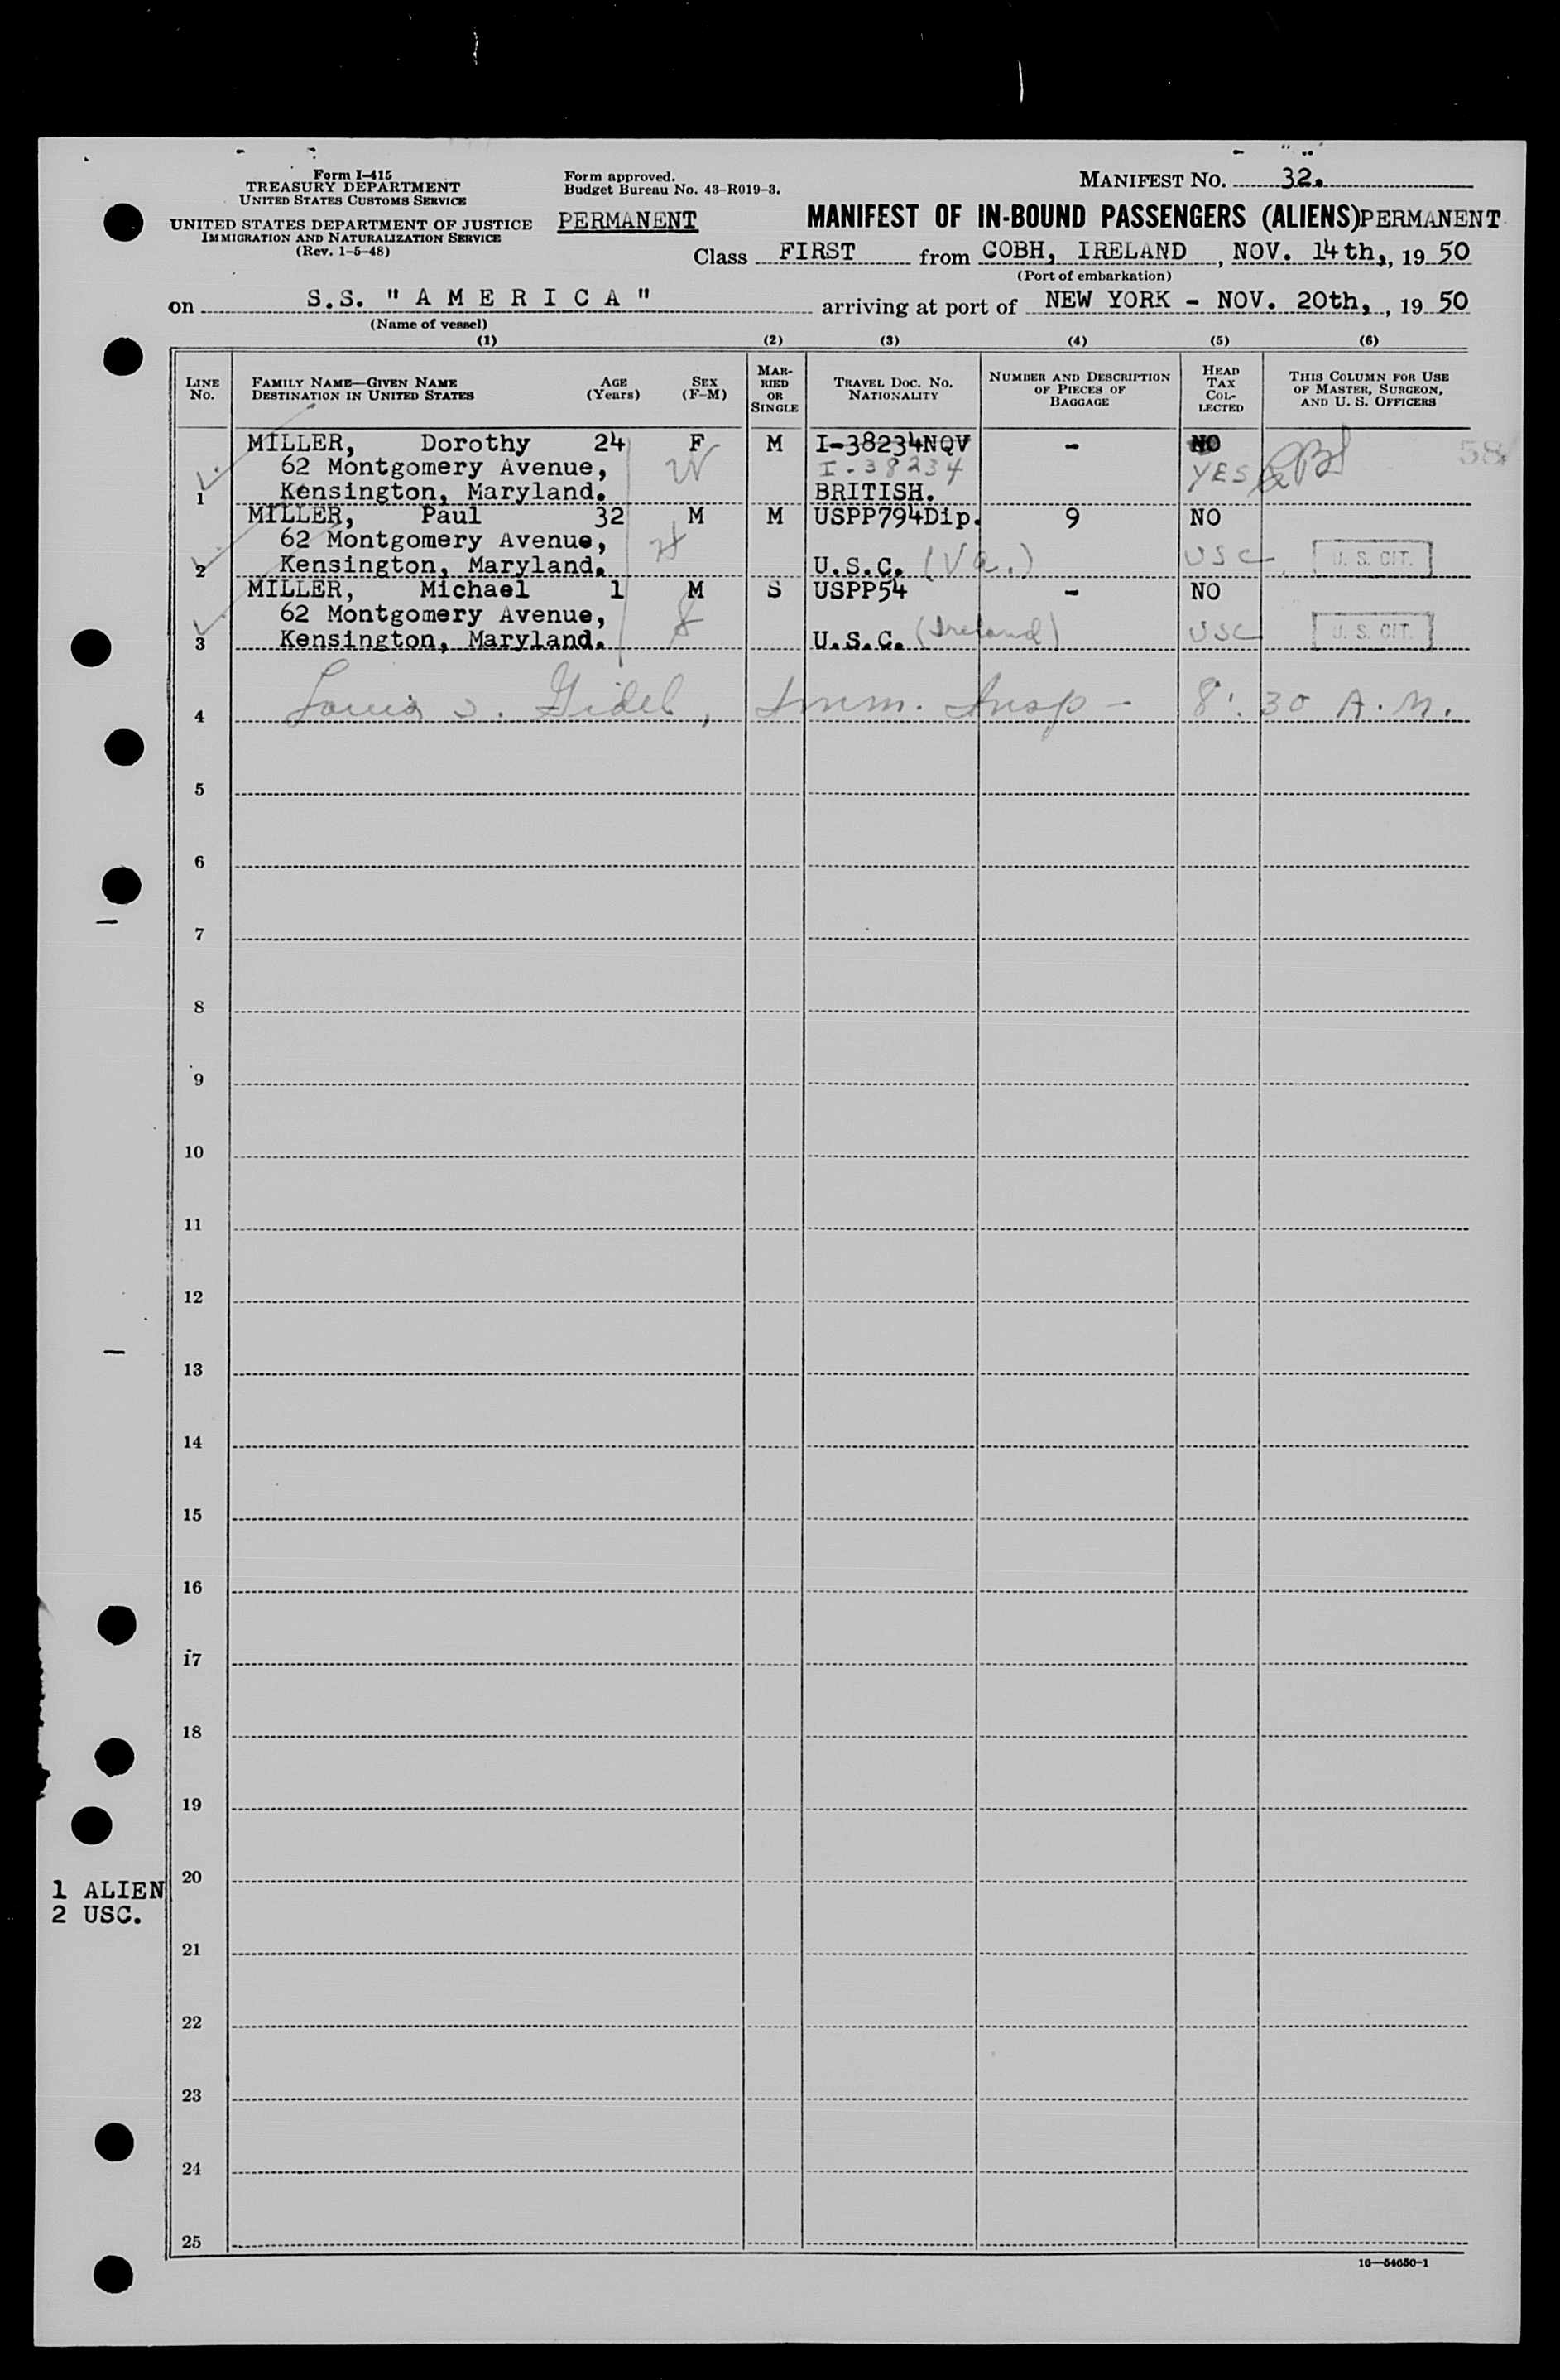 Form I-415
TREASURY DEPARTMENT
UNITED STATES CUSTOMS SERVICE
UNITED STATES DEPARTMENT OF JUSTICE
IMMIGRATION AND NATURALIZATION SERVICE
(Rev. 1-5-48)
Form approved.
Budget Bureau No. 43-R019-3.
PERMANENT
MANIFEST NO. 32.
MANIFEST OF IN-BOUND PASSENGERS (ALIENS) PERMANENT
Class FIRST from COBH, IRELAND, NOV. 14th, , 19 50
(Port of embarkation)
on S.S. "A M E R I C A" arriving at port of NEW YORK - NOV. 20th, , 19 50
(Name of vessel)
(1) (2) (3) (4) (5) (6)
LINE No.
FAMILY NAME—GIVEN NAME
DESTINATION IN UNITED STATES
AGE
(Years)
SEX
(F-M)
MAR-
RIED
OR
SINGLE
TRAVEL DOC. NO.
NATIONALITY
NUMBER AND DESCRIPTION
OF PIECES OF
BAGGAGE
HEAD
TAX
COL-
LECTED
THIS COLUMN FOR USE
OF MASTER, SURGEON,
AND U. S. OFFICERS
MILLER, Dorothy 24 F M I-38234NQV - NO 58
62 Montgomery Avenue, I-38234 YES
1 Kensington, Maryland. BRITISH.
MILLER, Paul 32 M M USPP794Dip. 9 NO
62 Montgomery Avenue,
2 Kensington, Maryland. U.S.C. (Va.) USC U. S. CIT.
MILLER, Michael 1 M S USPP54 - NO
62 Montgomery Avenue,
3 Kensington, Maryland. U.S.C. (Ireland) USC U. S. CIT.
4 Louis Imm. Insp - 8:30 A.M.
5
6
7
8
9
10
11
12
13
14
15
16
17
18
19
20
1 ALIEN
2 USC.
21
22
23
24
25
16—54650-1